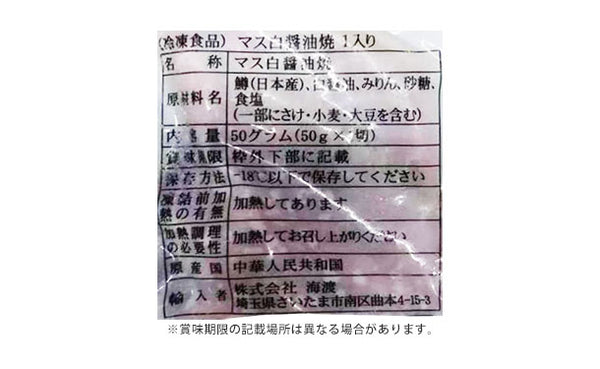 (冷凍食品) マス白醤油焼 1入り
名称 マス白醤油焼
原材料名 鱒(日本産)、白醤油、みりん、砂糖、
食塩
(一部にさけ・小麦・大豆を含む)
内容量 50グラム(50g×1切)
賞味期限 枠外下部に記載
保存方法 -18℃以下で保存してください
凍結前加
熱の有無 加熱してあります
加熱調理
の必要性 加熱してお召し上がりください
原産国 中華人民共和国
輸入者 株式会社 海渡
埼玉県さいたま市南区曲本4-15-3
※賞味期限の記載場所は異なる場合があります。